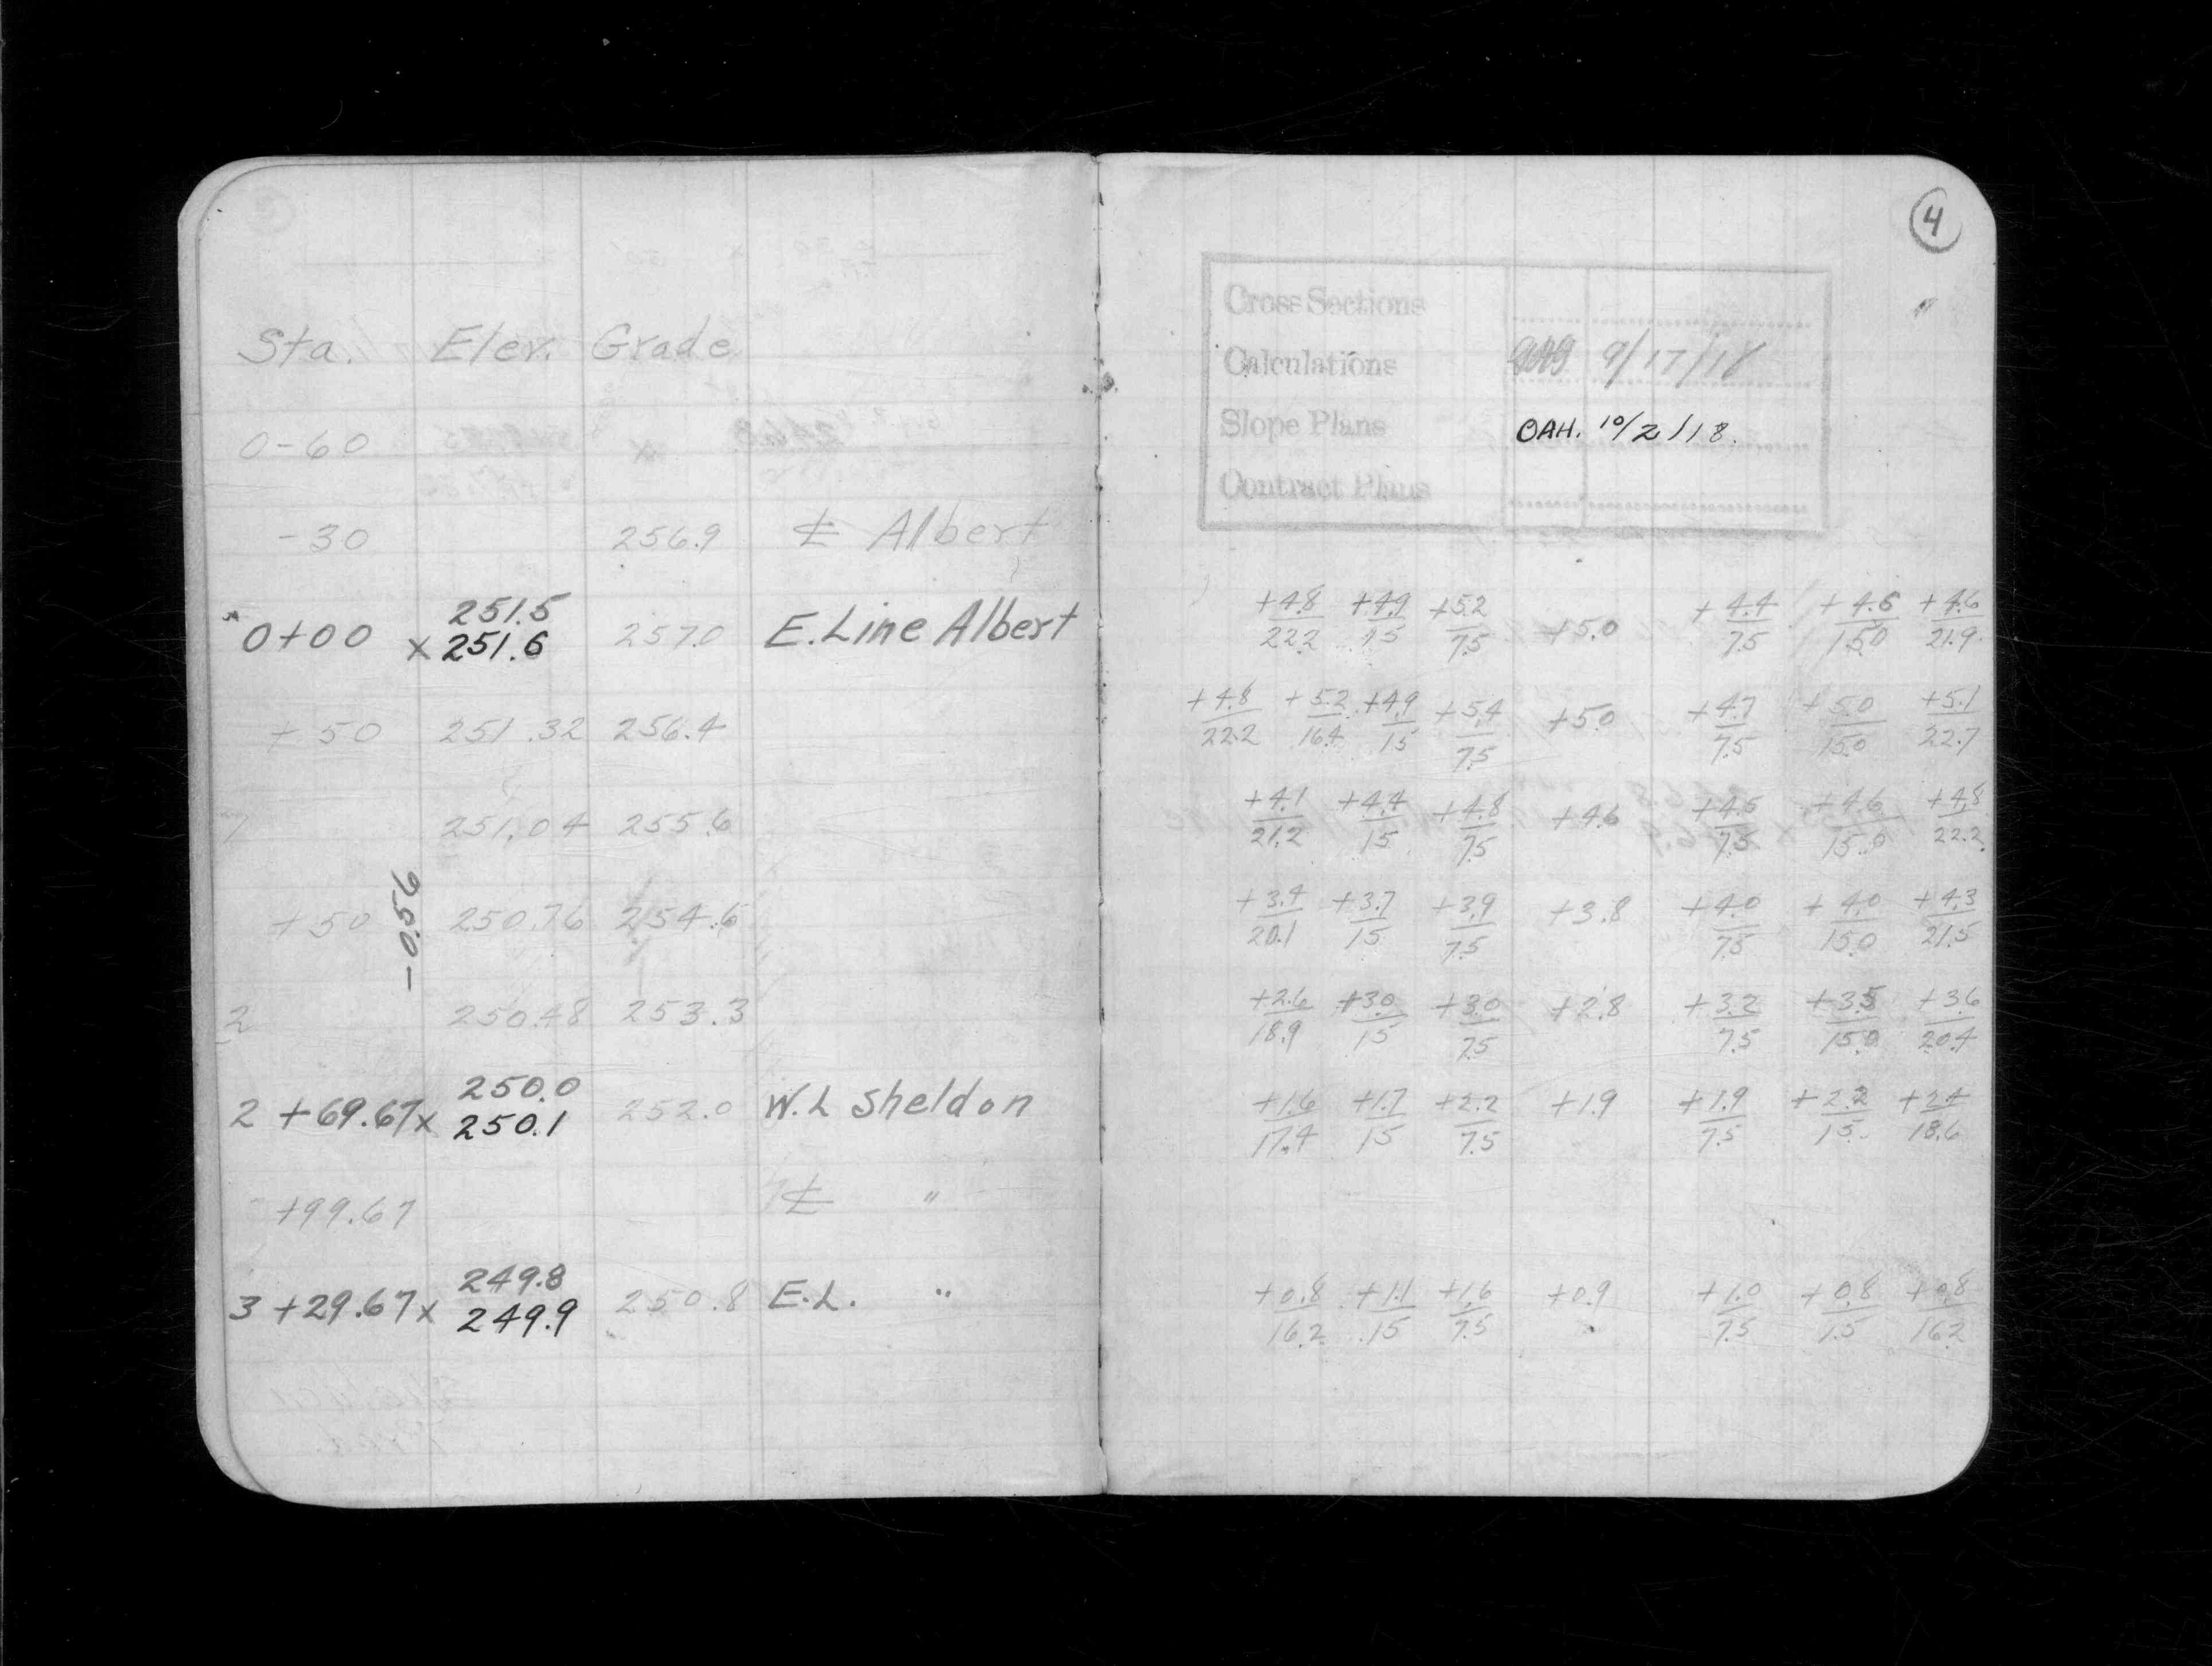 Sta. Elev. Grade
0-60
-30 256.9 ℄ Albert
0+00 x 251.5 251.6 257.0 E. Line Albert
+50 251.32 256.4
1 251.04 255.6
+50 250.76 254.6
-0.56
2 250.48 253.3
2 +69.67 x 250.0 250.1 252.0 W.L Sheldon
+99.67 ℄ "
3 +29.67 x 249.8 249.9 250.8 E.L. "
4
Cross Sections
Calculations 9/17/18
Slope Plans OAH. 10/2/18.
Contract Plans
+4.8 +4.9 +5.2 +5.0 +4.4 +4.6 +4.6
22.2 15 7.5 7.5 15.0 21.9
+4.8 +5.2 +4.9 +5.4 +5.0 +4.7 +5.0 +5.1
22.2 16.4 15 7.5 7.5 15.0 22.7
+4.1 +4.4 +4.8 +4.6 +4.5 +4.6 +4.8
21.2 15 7.5 7.5 15.0 22.2
+3.4 +3.7 +3.9 +3.8 +4.0 +4.0 +4.3
20.1 15 7.5 7.5 15.0 21.5
+2.6 +3.0 +3.0 +2.8 +3.2 +3.5 +3.6
18.9 15 7.5 7.5 15.0 20.4
+1.6 +1.7 +2.2 +1.9 +1.9 +2.2 +2.4
17.4 15 7.5 7.5 15 18.6
+0.8 +1.1 +1.6 +0.9 +1.0 +0.8 +0.8
16.2 15 7.5 7.5 15 16.2